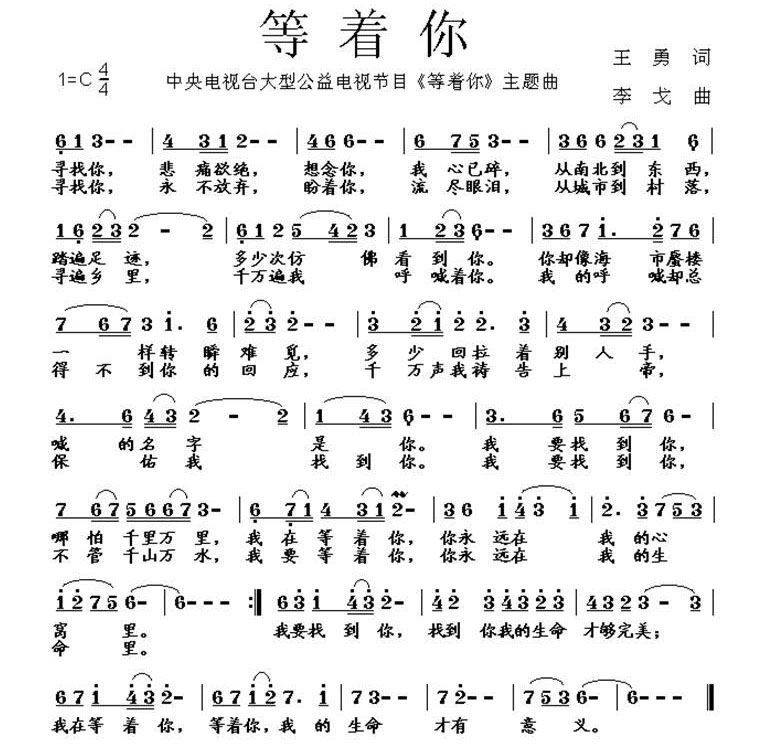 等着你
王勇词
1=C 4/4 中央电视台大型公益电视节目《等着你》主题曲
李戈曲
6 1 3 - - | 4 3 1 2 - - | 4 6 6 - - | 6 7 5 3 - - | 3 6 6 2 3 1 6 |
寻找你， 悲 痛欲绝， 想念你， 我 心已碎， 从南北到 东西，
寻找你， 永 不放弃， 盼着你， 流 尽眼泪， 从城市到 村落，
1 6 2 3 2 - 2 | 6 1 2 5 4 2 3 | 1 2 3 6 - - | 3 6 7 1 . 2 7 6 |
踏遍足 迹， 多少次仿 佛 看到你。 你却像海 市蜃楼
寻遍乡 里， 千万遍我 呼 喊着你。 我的呼 喊却总
7 6 7 3 1 . 6 | 2 3 2 - - | 3 2 1 2 2 . 3 | 4 3 2 3 - - |
一 样转瞬难觅， 多少回拉着别人手，
得不到你的回应， 千万声我祷告上帝，
4 . 6 4 3 2 - 2 | 1 4 3 6 - - | 3 . 6 5 6 7 6 - |
喊 的名字 是 你。 我 要找到你，
保 佑我 找到你。 我 要找到你，
7 6 7 5 6 6 7 3 - | 6 7 1 4 3 1 2 - | 3 6 1 4 3 1 | 2 . 3 7 5 3 |
哪怕千里万里， 我在等着你， 你永远在 我的心
不管千山万水， 我要等着你， 你永远在 我的生
1 2 7 5 6 - | 6 - - - :| 6 3 1 4 3 2 - | 4 2 3 4 3 2 3 | 4 3 2 3 - |
窝 里。 我要找到你， 找到你我的生命才够完美；
命 里。
6 7 1 4 3 2 - | 6 7 1 2 7 . 1 | 7 3 - - | 7 2 - - | 7 5 3 6 - | 6 - - - |
我在等着你， 等着你，我的生命 才有 意义。